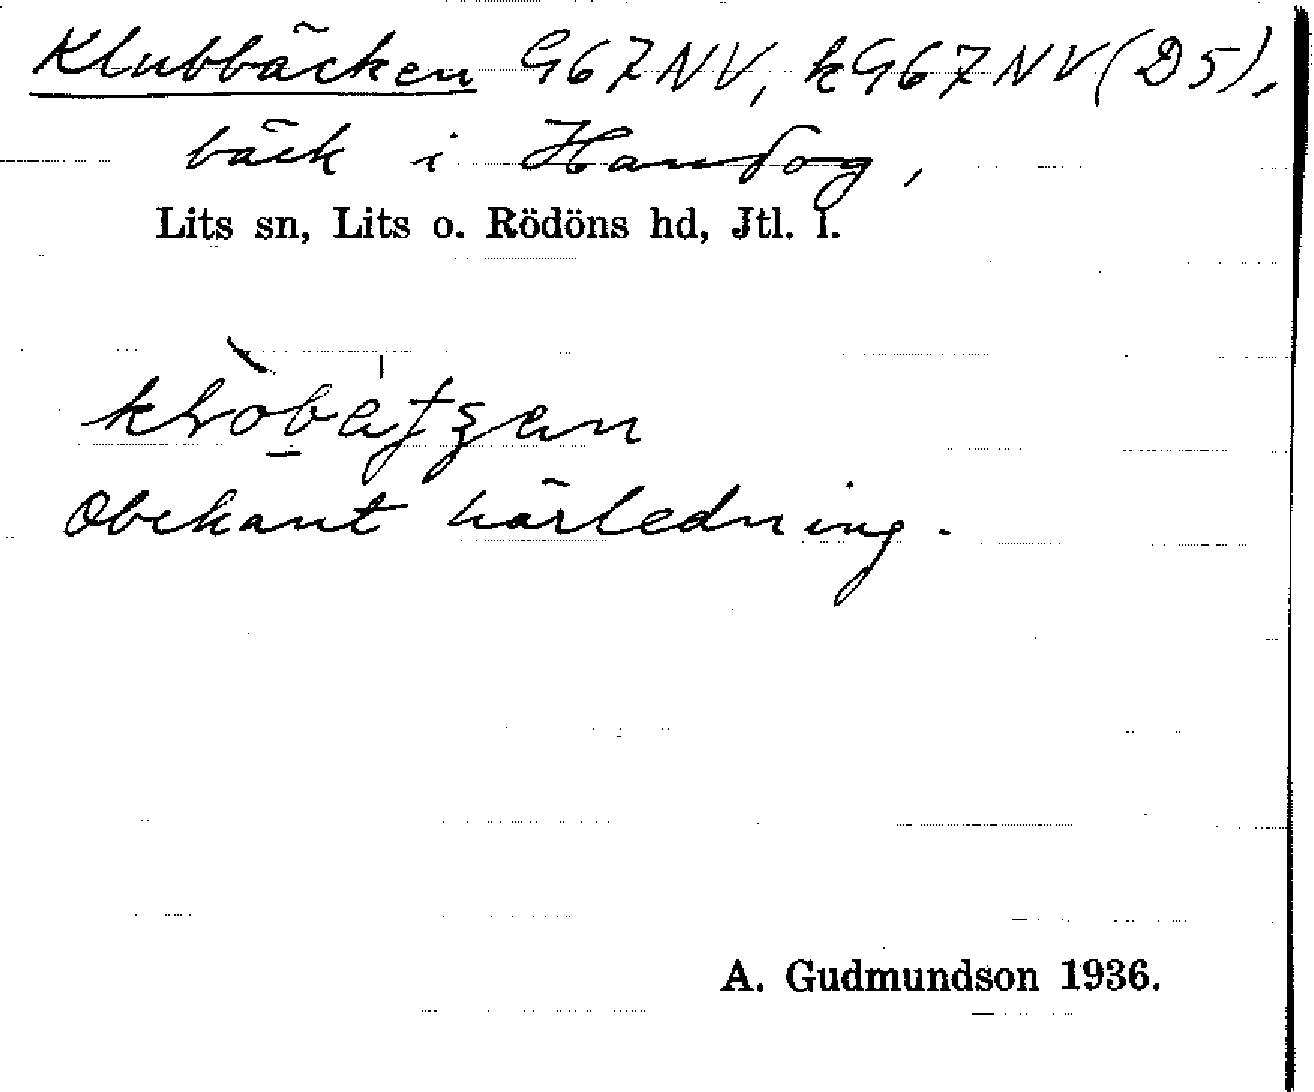 Klubbäcken G67NV, kG67NV(D5),
bäck i Handog,
Lits sn, Lits o. Rödöns hd, Jtl. l.
Obekant härledning.
A. Gudmundson 1936.